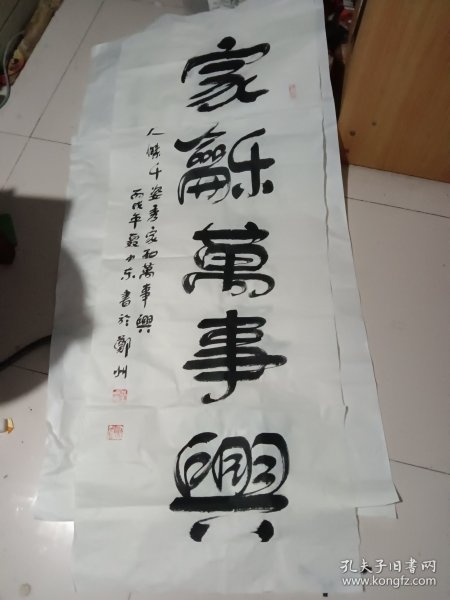 家龢萬事興
人勤千姿秀家和萬事興
丙戌年夏少东書於鄭州
孔夫子旧书网
www.kongfz.com